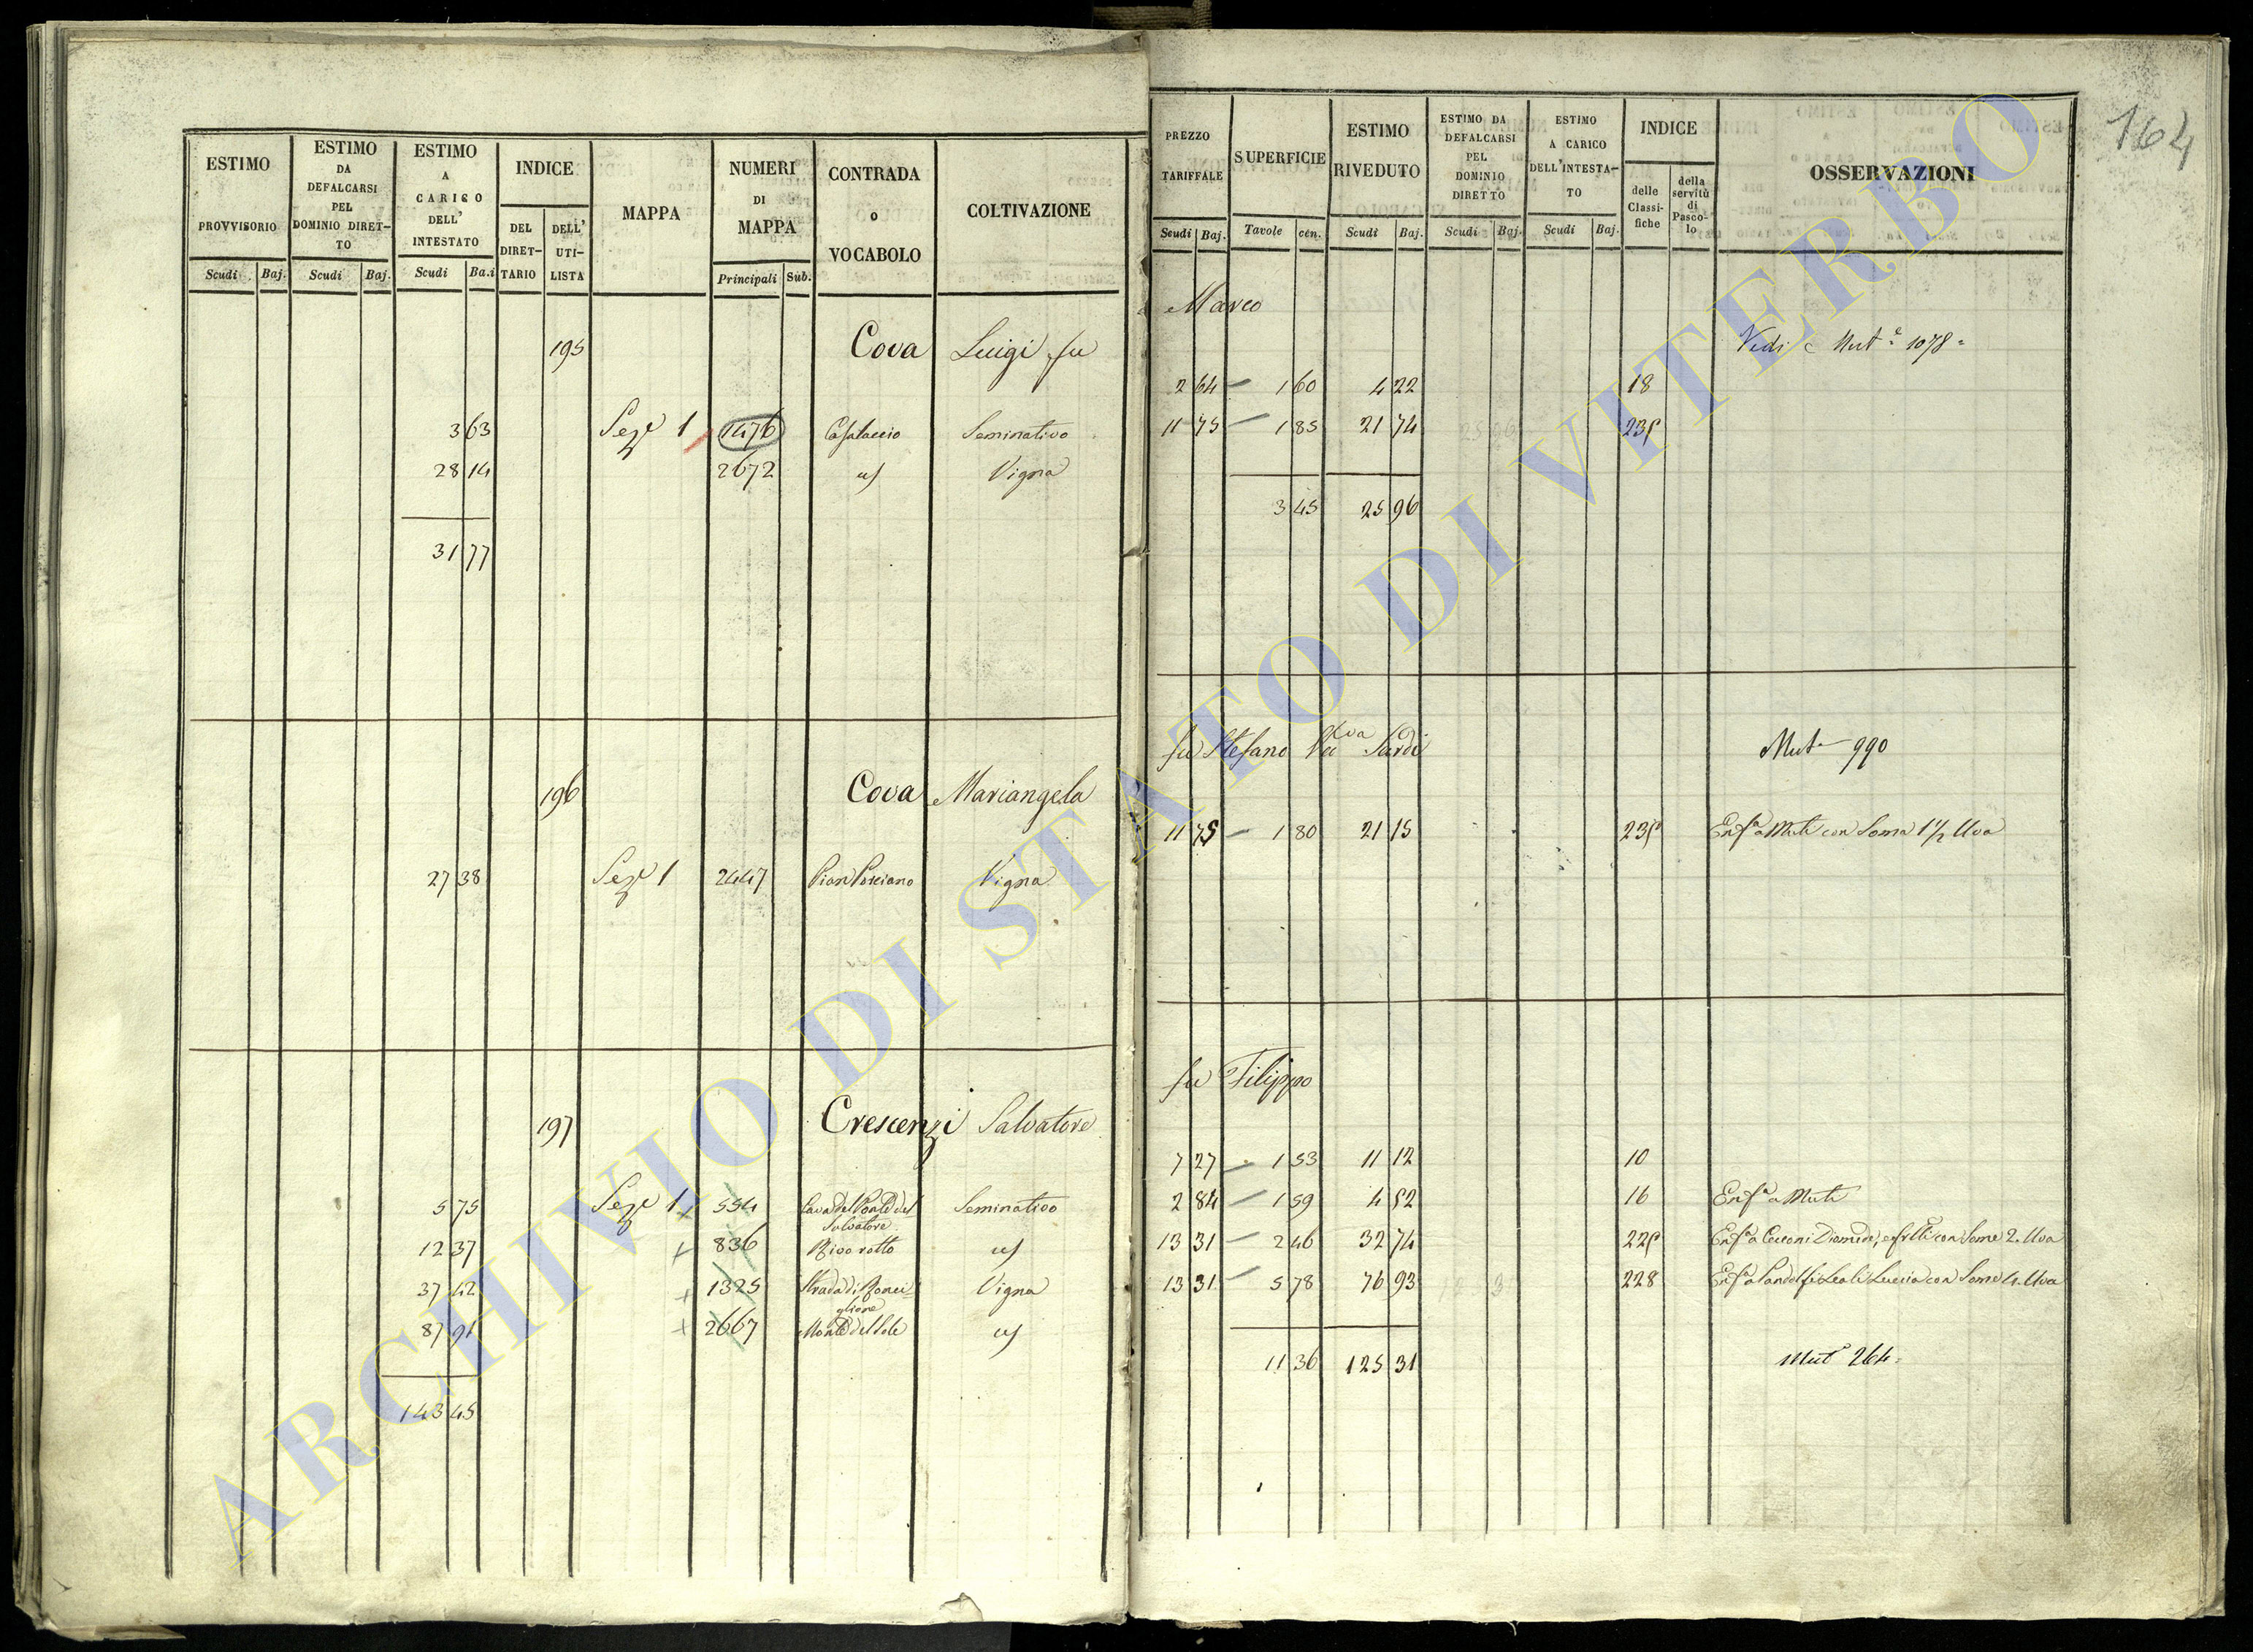 164
ESTIMO PROVVISORIO
ESTIMO DA DEFALCARSI PEL DOMINIO DIRET-TO
ESTIMO A CARICO DELL' INTESTATO
INDICE
DEL DIRET-TARIO
DELL' UTI-LISTA
MAPPA
NUMERI DI MAPPA
CONTRADA O VOCABOLO
COLTIVAZIONE
Scudi Baj. Scudi Baj. Scudi Ba.i Principali Sub.
195 Cova Luigi fu
3 63 Seze 1 1476 Casalaccio Seminativo
28 14 2672 Vigna
31 77
196 Cova Mariangela
27 38 Seze 1 2447 Pian Porciano Vigna
197 Crescenzi Salvatore
5 75 Seze 1 554 Cava del Ponte del Salvatore Seminativo
12 37 + 836 Rivo rotto
37 42 + 1325 Strada di Ronci-glione Vigna
87 91 + 2667 Monte del Sole
143 45
PREZZO TARIFFALE
SUPERFICIE
ESTIMO RIVEDUTO
ESTIMO DA DEFALCARSI PEL DOMINIO DIRETTO
ESTIMO A CARICO DELL'INTESTA-TO
INDICE
delle Classi-fiche
della servitù di Pasco-lo
OSSERVAZIONI
Scudi Baj. Tavole cen. Scudi Baj. Scudi Baj. Scudi Baj.
Marco
Vedi Mut.e 1078
2 64 – 1 60 4 22 18
11 75 – 1 85 21 74
3 45 25 96
fu Stefano Sardi Mut 990
11 75 – 1 80 21 15 Enfa a Muti con Soma 1 1/2 Uva
fu Filippo
7 27 – 1 53 11 12 10
2 84 – 1 59 4 52 16 Enfa a Muti
13 31 – 2 46 32 74 Enfa a Cecconi Diomede, e fratelli con Some 2. Uva
13 31 – 5 78 76 93 228 Enfa a Leali Luccia con Some 4. Uva
11 36 125 31 Mut 264
ARCHIVIO DI STATO DI VITERBO